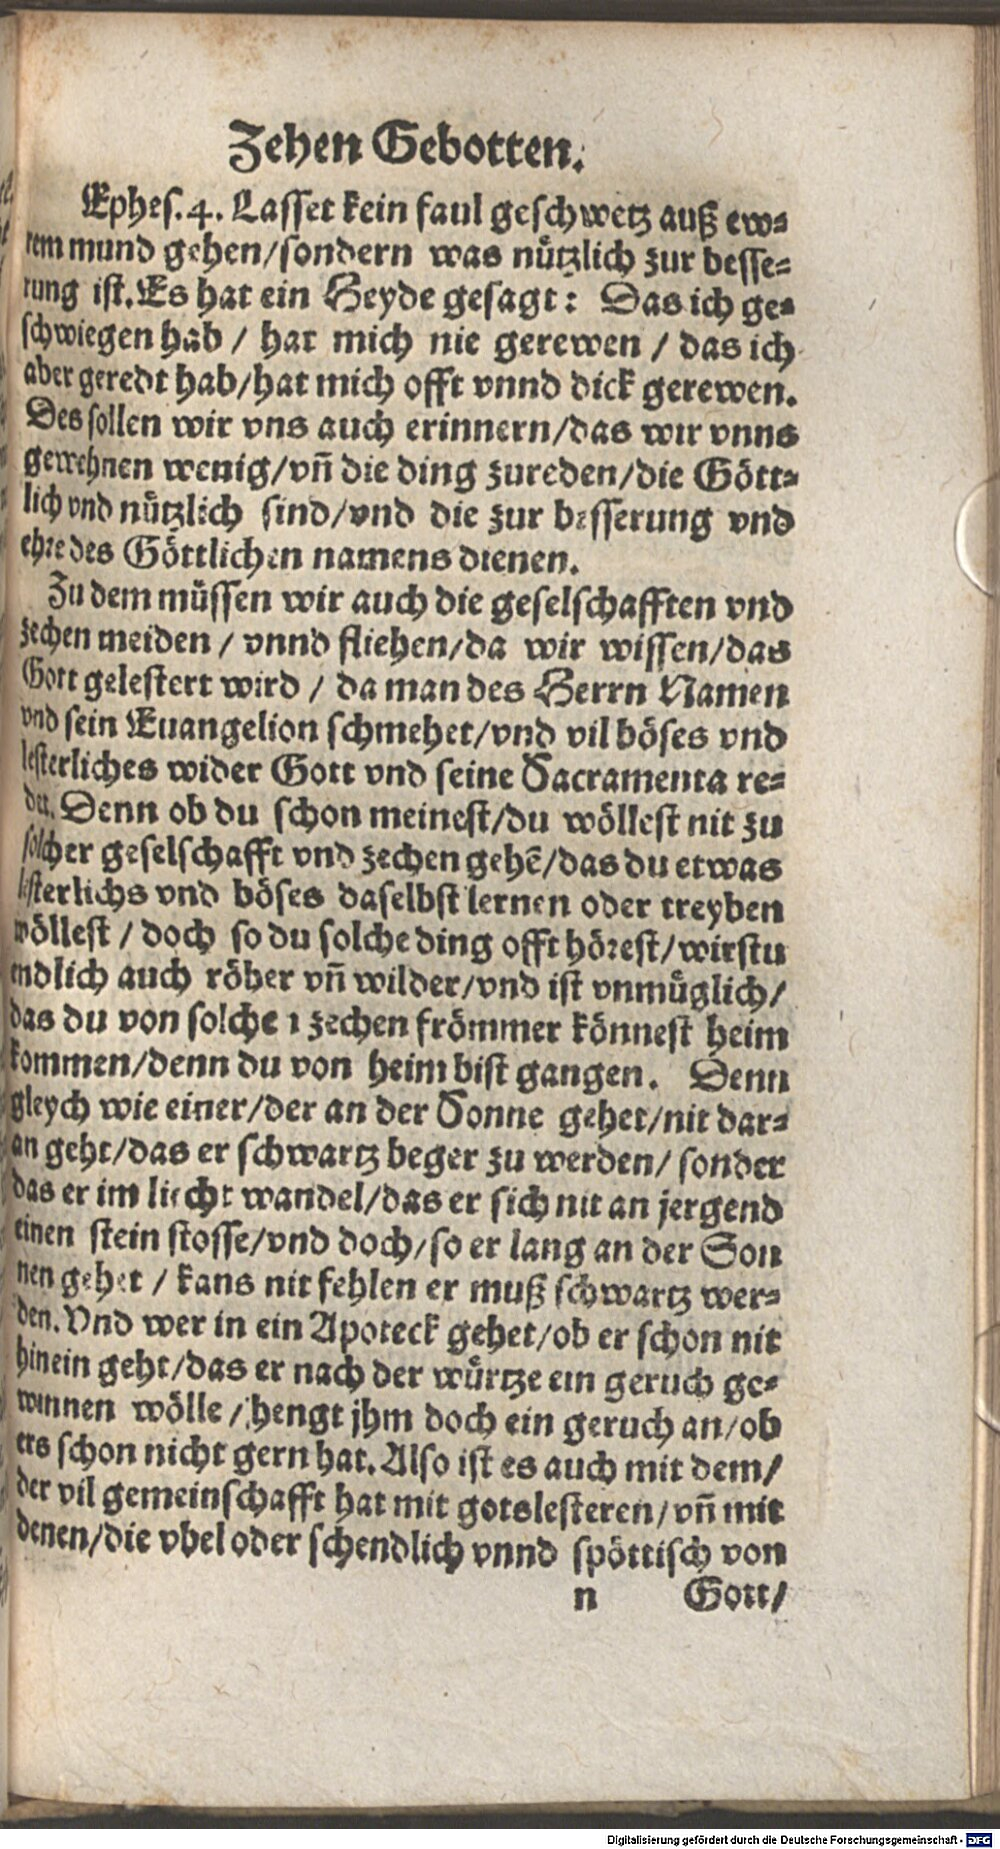 Zehen Gebotten.
Ephes. 4. Lasset kein faul geschwetz auß ew-
rem mund gehen/sondern was nützlich zur besse-
rung ist. Es hat ein Heyde gesagt: Das ich ge-
schwiegen hab / hat mich nie gerewen / das ich
aber geredt hab/hat mich offt vnnd dick gerewen.
Des sollen wir vns auch erinnern/das wir vnns
gewehnen wenig/vñ die ding zureden/die Gött-
lich vnd nützlich sind/vnd die zur besserung vnd
ehre des Göttlichen namens dienen.
Zu dem müssen wir auch die geselschafften vnd
zechen meiden / vnnd fliehen/da wir wissen/das
Gott gelestert wird / da man des Herrn Namen
vnd sein Euangelion schmehet/vnd vil böses vnd
lesterliches wider Gott vnd seine Sacramenta re-
det. Denn ob du schon meinest/du wöllest nit zu
solcher geselschafft vnd zechen gehē/das du etwas
lesterlichs vnd böses daselbst lernen oder treyben
wöllest / doch so du solche ding offt hörest/wirstu
endlich auch röher vñ wilder/vnd ist vnmüglich/
das du von solche1 zechen frömmer könnest heim
kommen/denn du von heim bist gangen. Denn
gleych wie einer/der an der Sonne gehet/nit dar-
an geht/das er schwartz beger zu werden/ sonder
das er im liecht wandel/das er sich nit an jergend
einen stein stosse/vnd doch/so er lang an der Son
nen gehet / kans nit fehlen er muß schwartz wer-
den. Vnd wer in ein Apoteck gehet/ob er schon nit
hinein geht/das er nach der würtze ein geruch ge-
winnen wölle / hengt jhm doch ein geruch an/ob
ers schon nicht gern hat. Also ist es auch mit dem/
der vil gemeinschafft hat mit gotslesteren/vñ mit
denen/die vbel oder schendlich vnnd spöttisch von
n Gott/
Digitalisierung gefördert durch die Deutsche Forschungsgemeinschaft - DFG